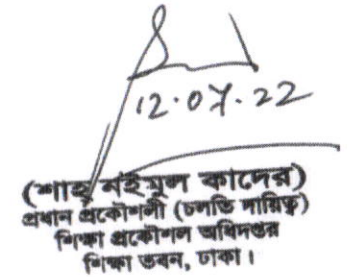 12.07.22
(শাহ্ নইমুল কাদের)
প্রধান প্রকৌশলী (চলতি দায়িত্ব)
শিক্ষা প্রকৌশল অধিদপ্তর
শিক্ষা ভবন, ঢাকা।